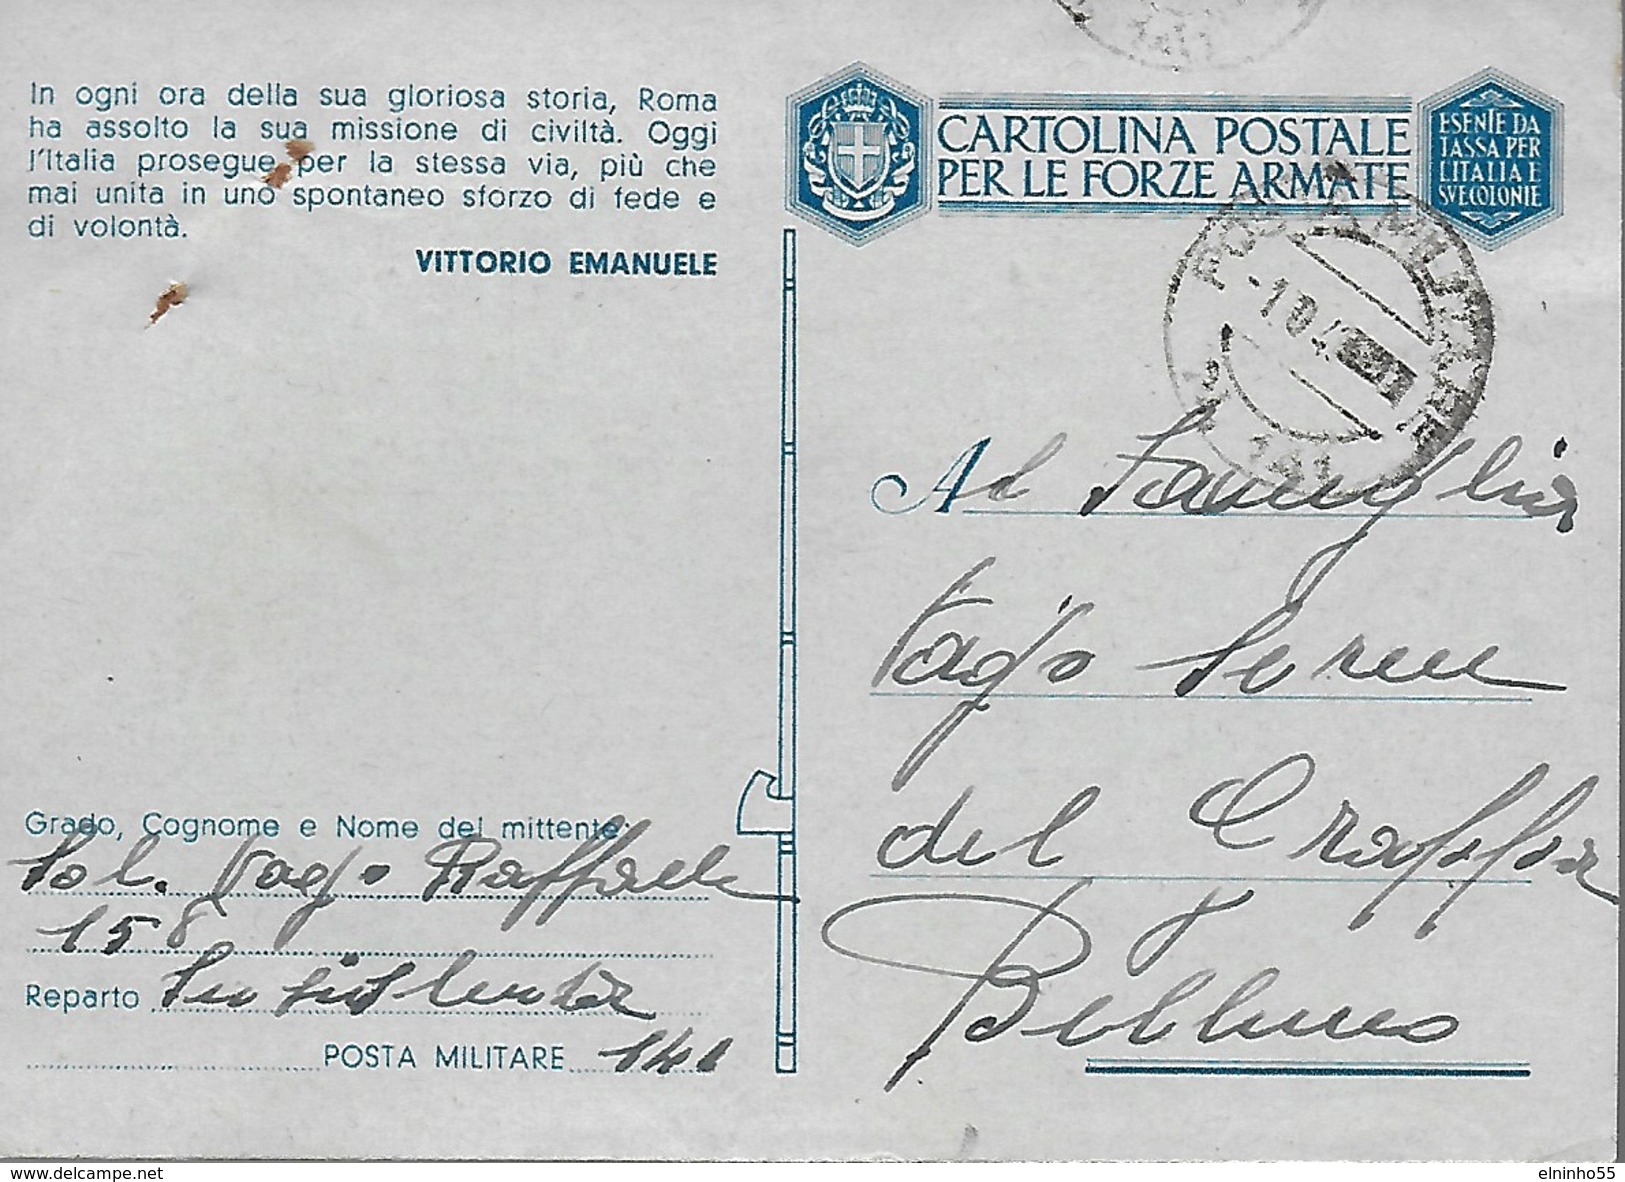 In ogni ora della sua gloriosa storia, Roma
ha assolto la sua missione di civiltà. Oggi
l'Italia prosegue per la stessa via, più che
mai unita in uno spontaneo sforzo di fede e
di volontà.
VITTORIO EMANUELE
CARTOLINA POSTALE
PER LE FORZE ARMATE
ESENTE DA
TASSA PER
L'ITALIA E
SVE COLONIE
POSTA MILITARE
141
Al Famiglia
Vago Seren
del Grappa
Belluno
Grado, Cognome e Nome del mittente:
Sol. Vago Raffaele
158
Reparto Sussistenza
POSTA MILITARE 141
delcampe.net
elninho55